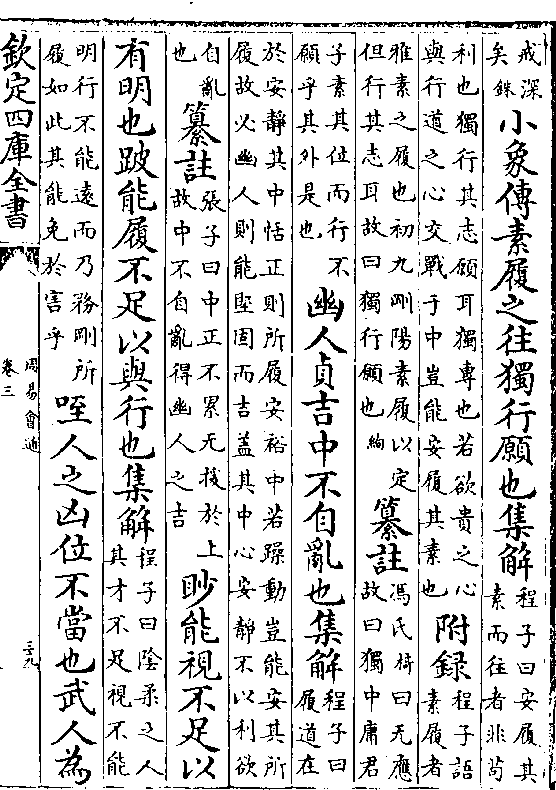 戒深
矣銖
小象傳素履之往獨行願也集解
程子曰安履其
素而往者非茍
利也獨行其志願耳獨專也若欲貴之心
與行道之心交戰于中豈能安履其素也
附録
程子語
素履者
雅素之履也初九剛陽素履以定
但行其志耳故曰獨行願也絢
纂註
馮氏椅曰无應
故曰獨中庸君
子素其位而行不
願乎其外是也
幽人貞吉中不自亂也集解
程子曰
履道在
於安靜其中恬正則所履安裕中若躁動豈能安其所
履故必幽人則能堅固而吉盖其中心安靜不以利欲
自亂
也
纂註
張子曰中正不累无援於上
故中不自亂得幽人之吉
眇能視不足以
有明也跛能履不足以與行也集解
程子曰陰柔之人
其才不足視不能
明行不能遠而乃務剛所
履如此其能免於害乎
咥人之凶位不當也武人為
欽定四庫全書
周易會通
卷三